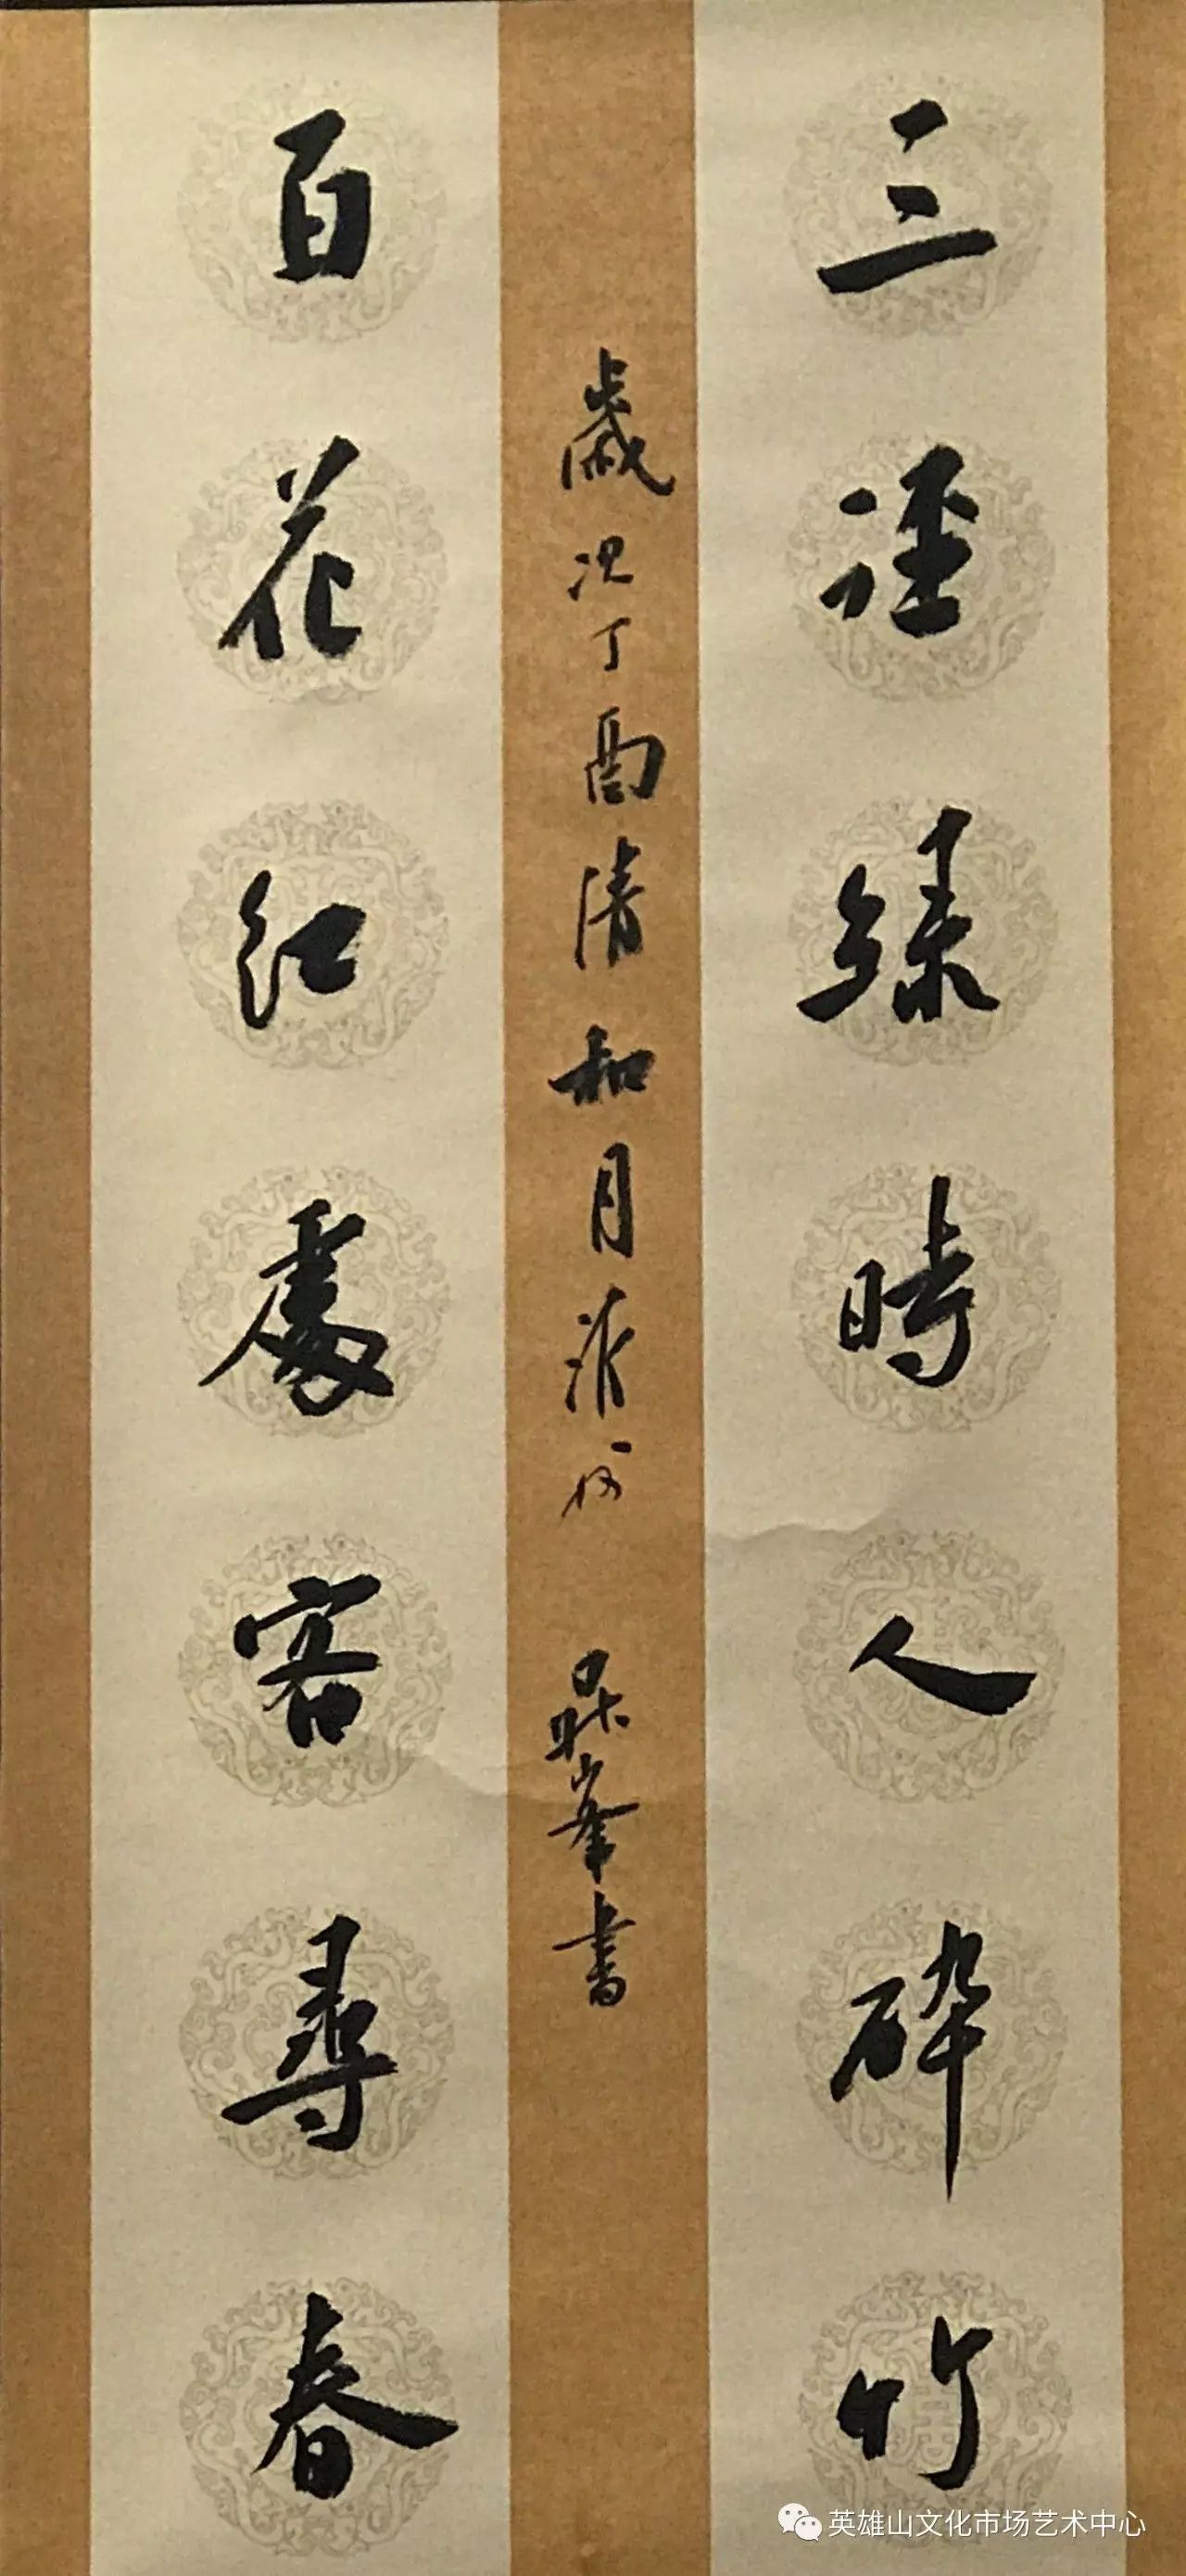 三徑綠時人醉竹
歲次丁酉清和月 峯書
百花紅處客尋春
英雄山文化市场艺术中心